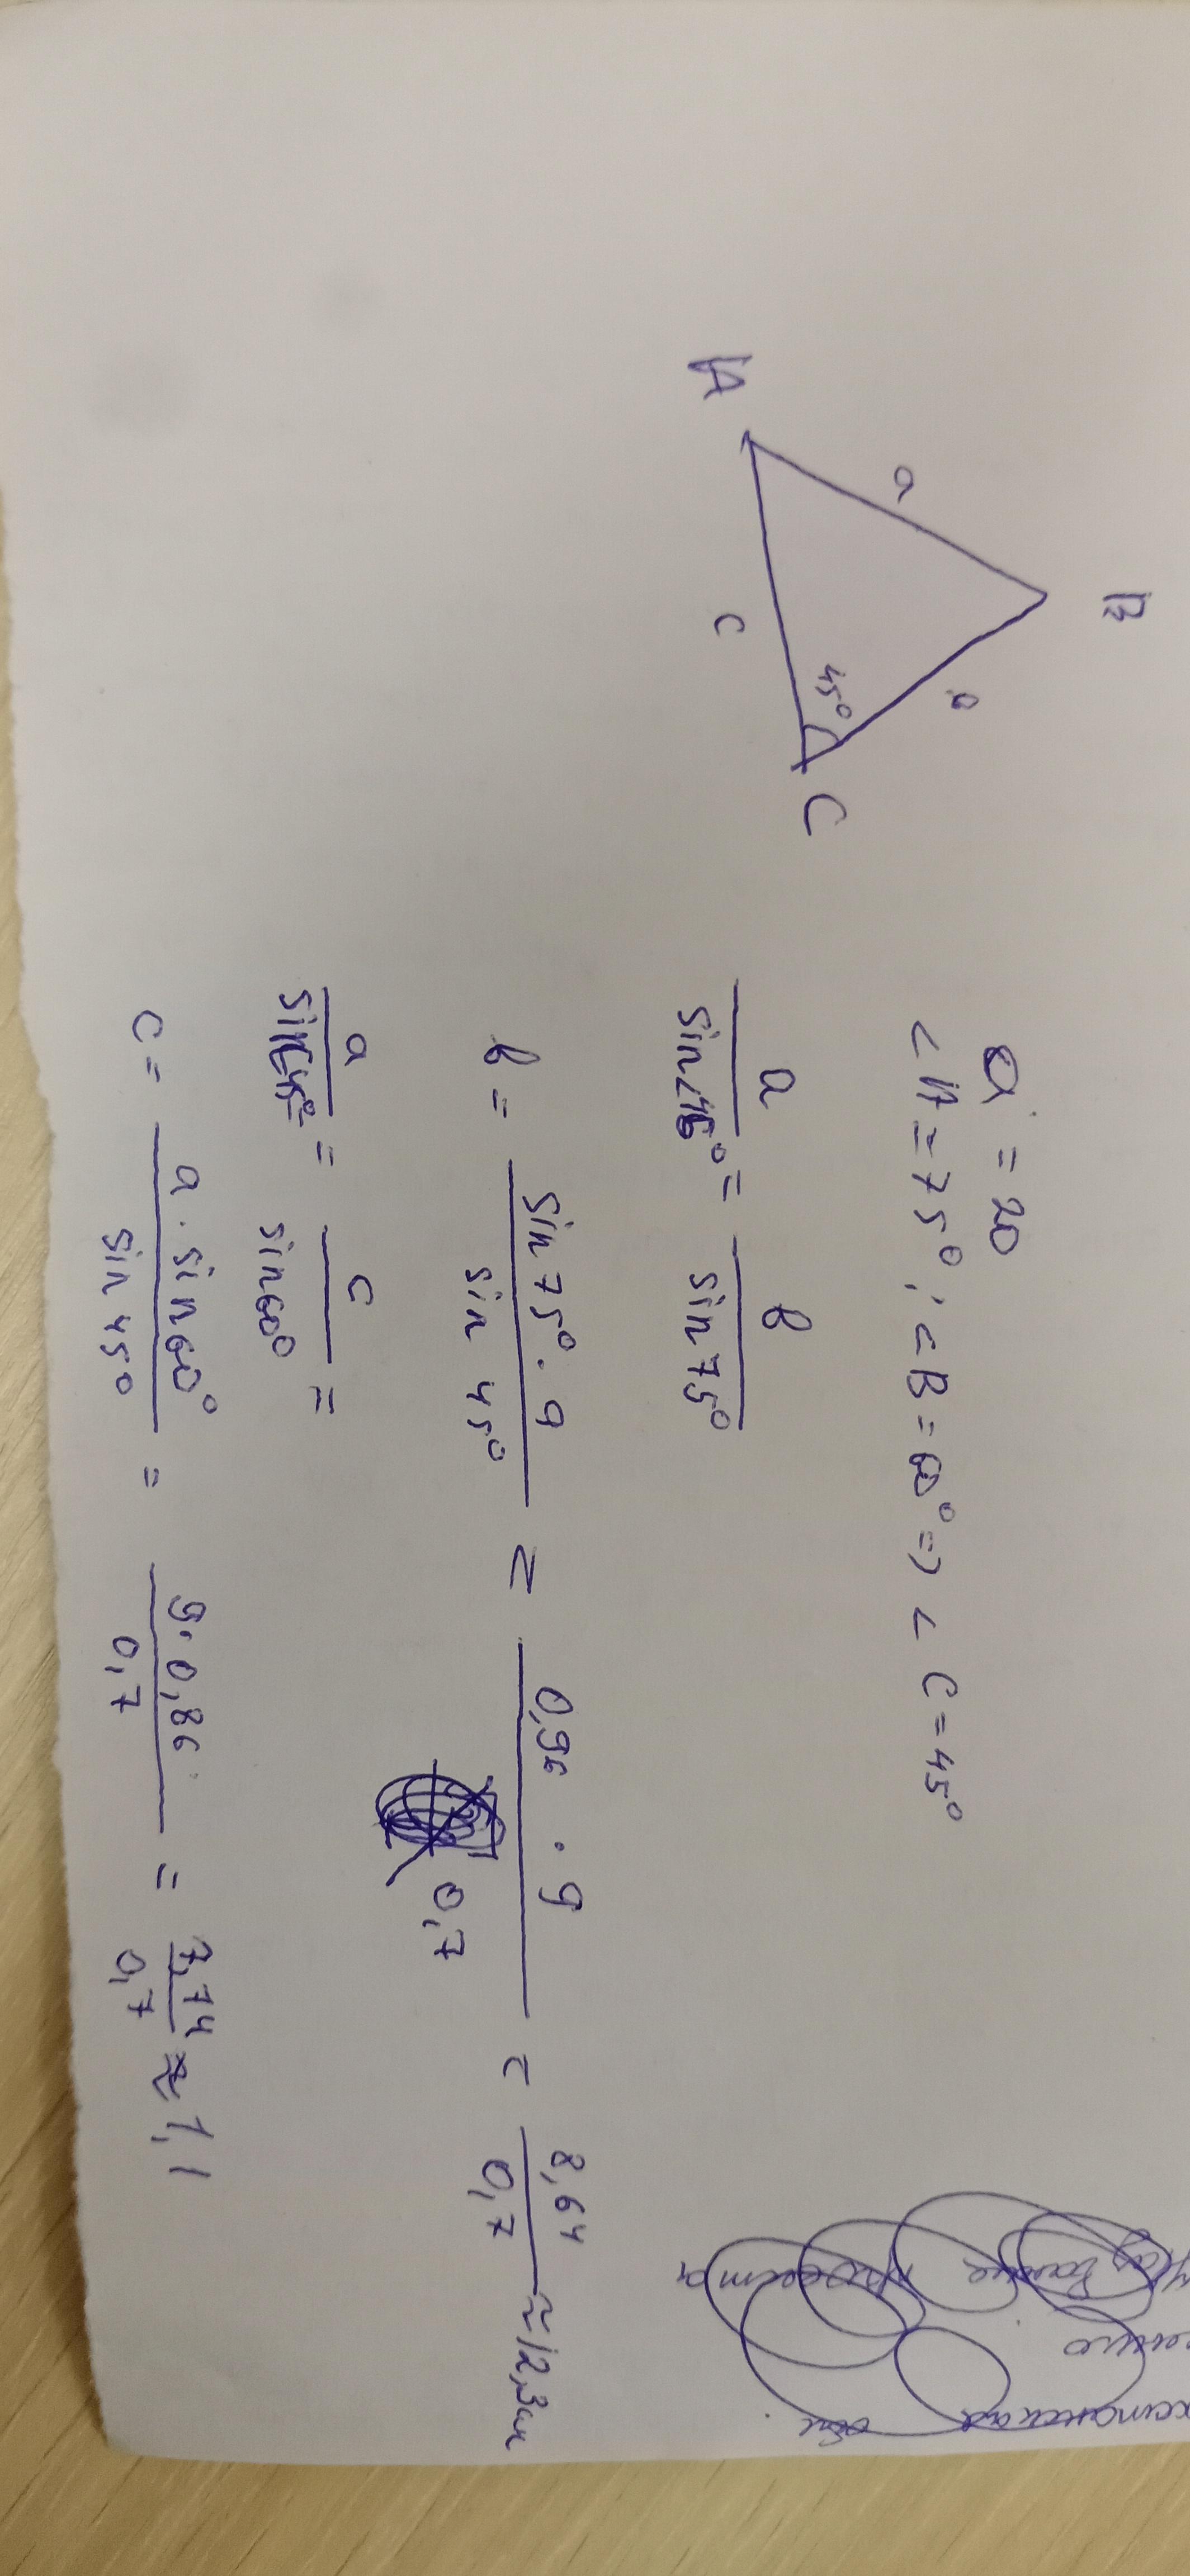 B
a
в
A
45°
C
c
a = 20
<A = 75°; <B = 60° => < C = 45°
a/sin<45° = в/sin 75°
в = sin 75° · a/sin 45° = 0,96 · 9/0,7 = 8,64/0,7 ≈ 12,3см
a/sin45° = c/sin60° =
c = a · sin 60°/sin 45° = 9 · 0,86/0,7 = 7,74/0,7 ≈ 1,1